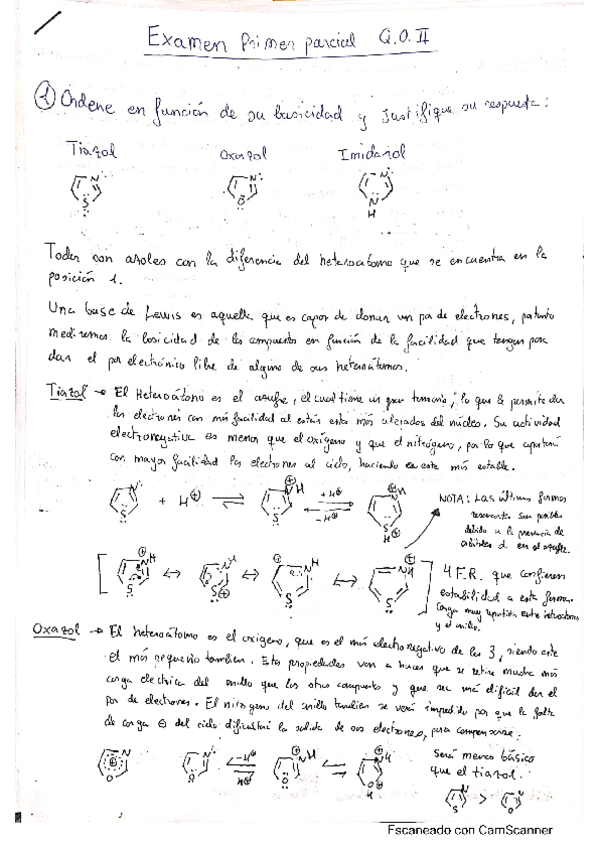 Examen Primer parcial Q.O.II
① Ordene en función de su basicidad y justifique su respuesta:
Tiazol Oxazol Imidazol
N S N O N N H
Todos son azoles con la diferencia del heteroátomo que se encuentra en la
posición 1.
Una base de Lewis es aquella que es capaz de donar un par de electrones, por tanto
mediremos la basicidad de los compuestos en función de la facilidad que tengan para
dar el par electrónico libre de alguno de sus heteroátomos.
Tiazol → El Heteroátomo es el azufre, el cual tiene un gran tamaño, lo que le permite dar
los electrones con más facilidad al estar estos más alejados del núcleo. Su
electronegativa es menor que el oxígeno y que el nitrógeno, por lo que aportará
con mayor facilidad los electrones al ciclo, haciendo a este más estable.
+ H⊕ ⇌ +H⊕ -H⊕
NOTA: Las últimas formas
resonantes son posibles
debido a la presencia de
orbitales d en el azufre.
4 F.R. que confieren
estabilidad a esta forma.
Carga muy repartida entre heteroátomos
y el anillo.
Oxazol → El heteroátomo es el oxígeno, que es el más electronegativo de los 3, siendo este
el más pequeño también. Estas propiedades van a hacer que se retire mucha más
carga eléctrica del anillo que los otros compuestos y que sea más difícil dar el
par de electrones. El nitrógeno del anillo también se verá impedido por que la falta
de carga ⊖ del ciclo dificultará la salida de sus electrones, para compensarse.
Será menos básico
que el tiazol.
Escaneado con CamScanner